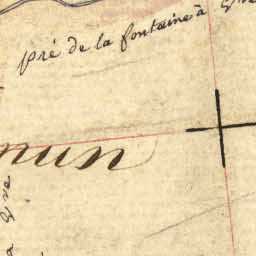 pré de la fontaine à
mun